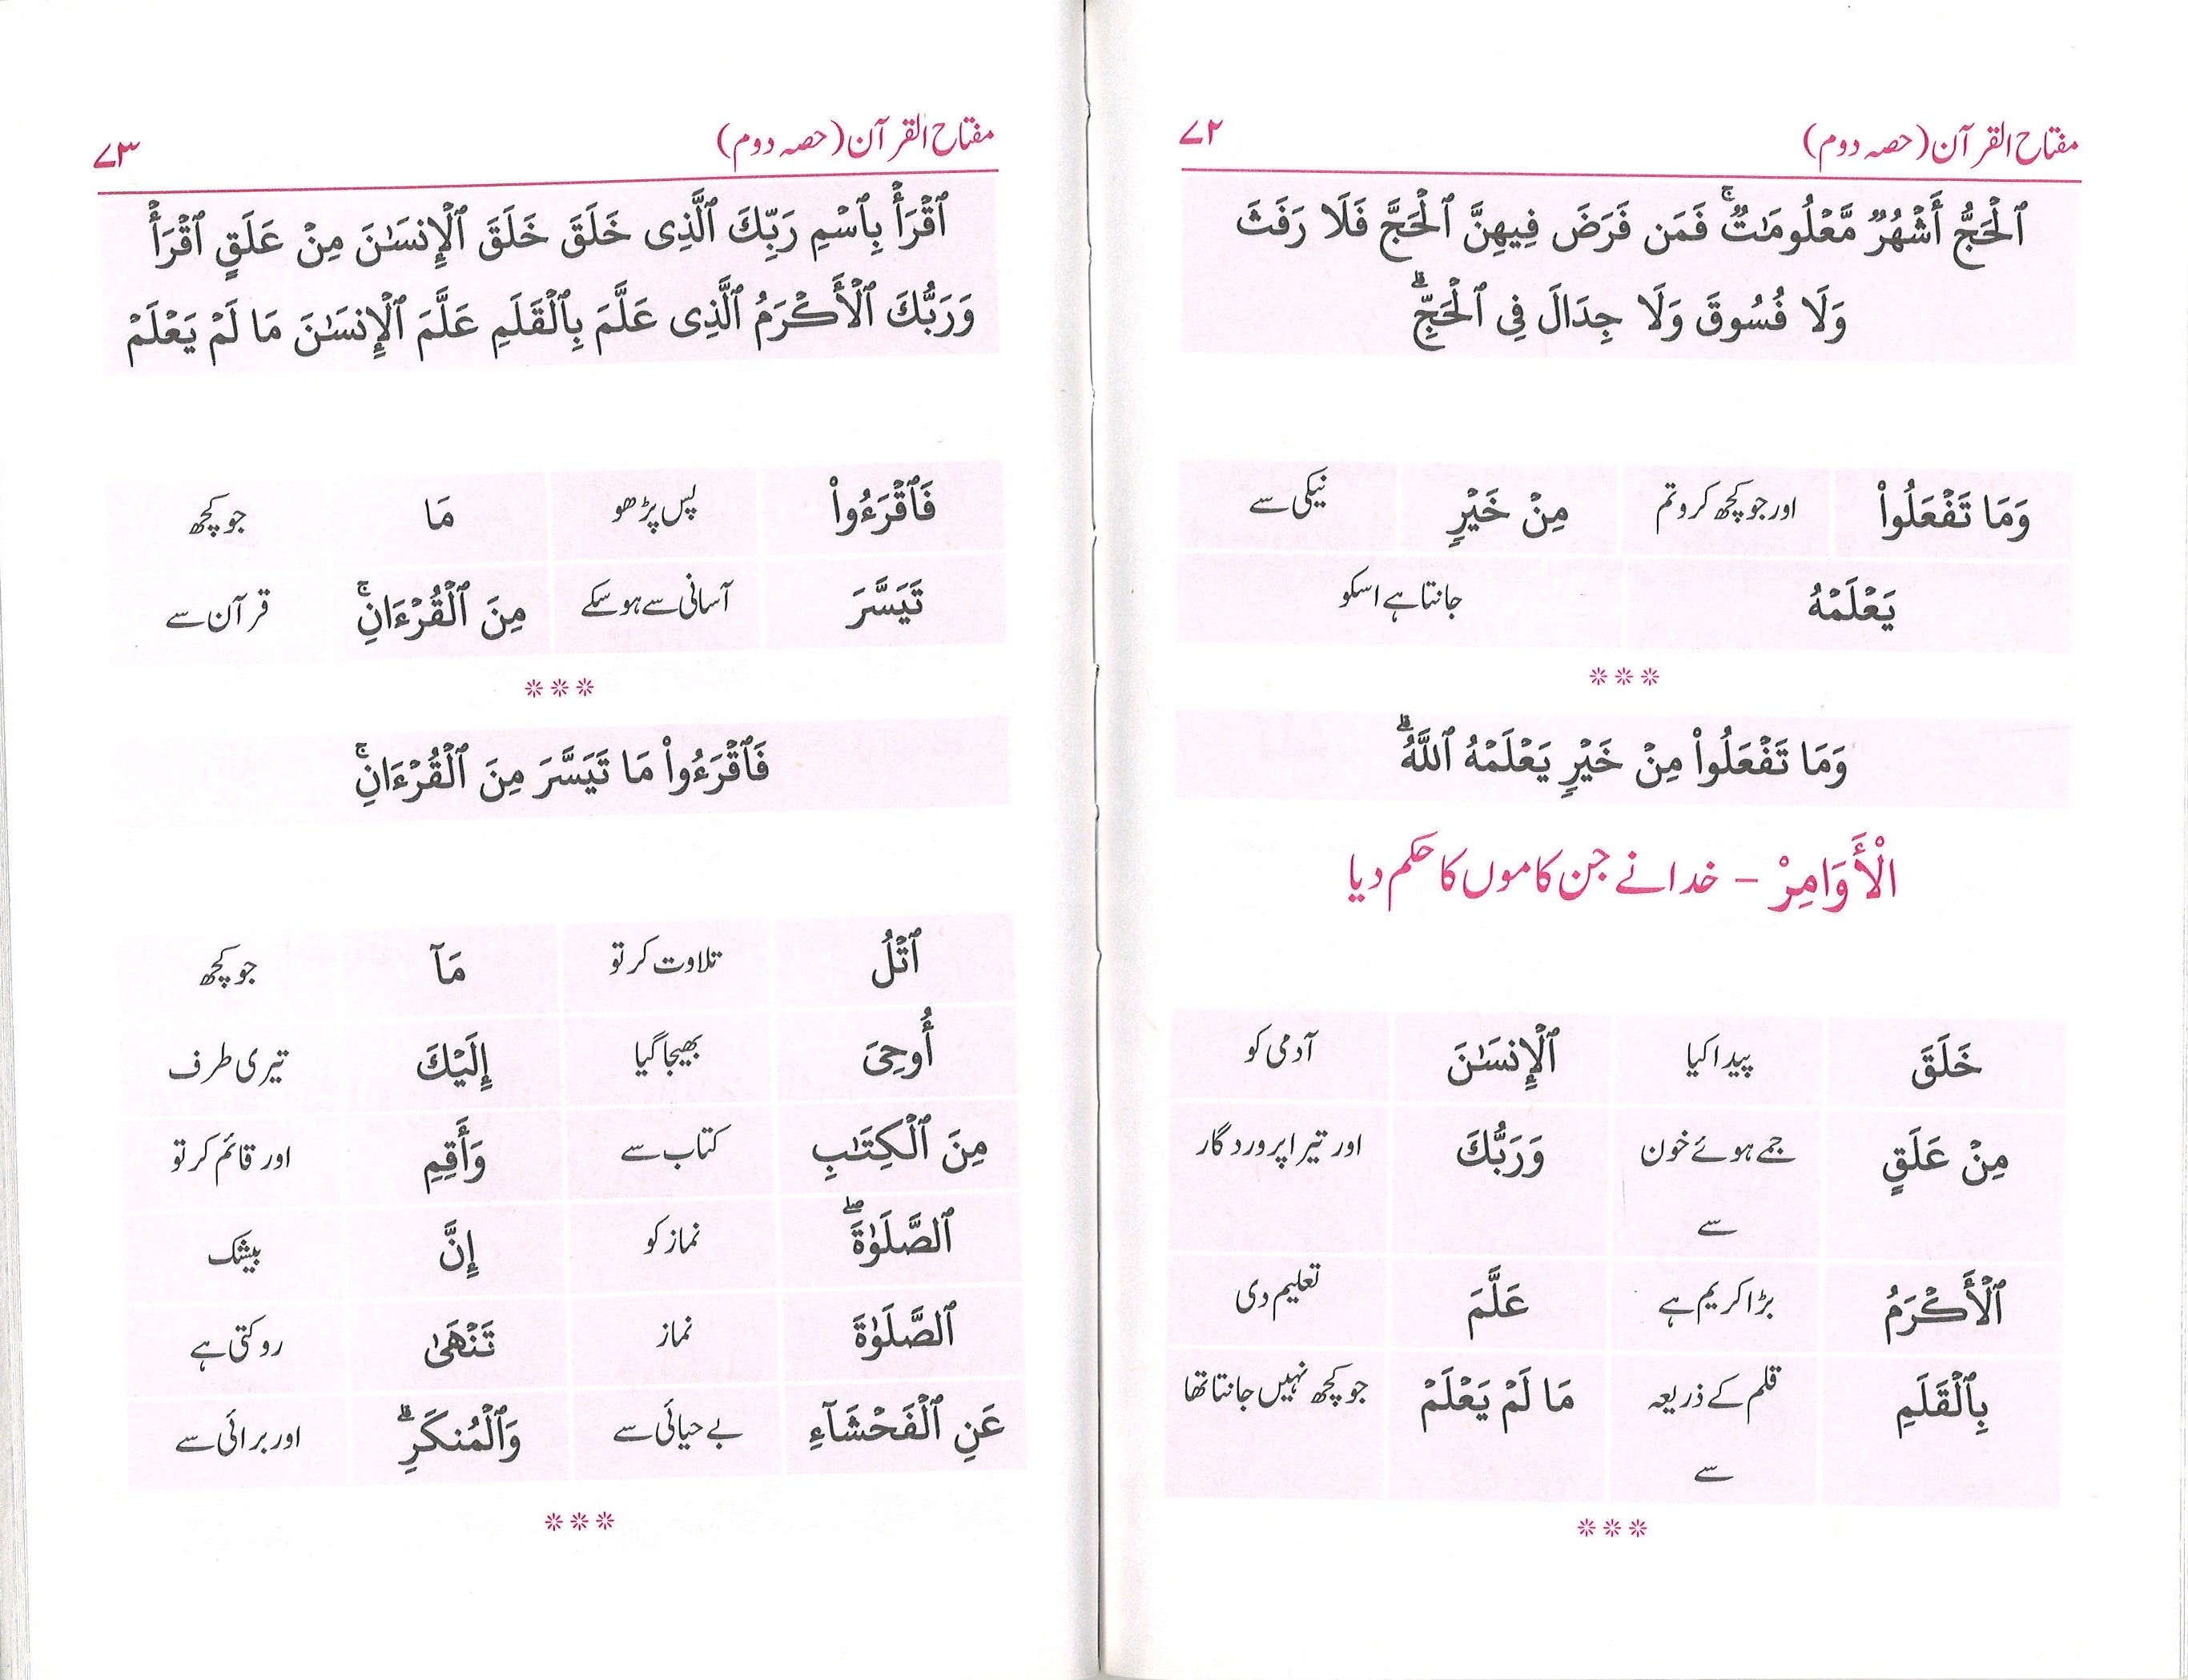 مفتاح القرآن (حصہ دوم) ۷۲
ٱلْحَجُّ أَشْهُرٌ مَّعْلُومَٰتٌ ۚ فَمَن فَرَضَ فِيهِنَّ ٱلْحَجَّ فَلَا رَفَثَ
وَلَا فُسُوقَ وَلَا جِدَالَ فِى ٱلْحَجِّ ۗ
وَمَا تَفْعَلُوا۟ اور جو کچھ کرو تم مِنْ خَيْرٍ نیکی سے
يَعْلَمْهُ جانتا ہے اسکو
***
وَمَا تَفْعَلُوا۟ مِنْ خَيْرٍ يَعْلَمْهُ ٱللَّهُ ۗ
الْأَوَامِرْ – خدا نے جن کاموں کا حکم دیا
خَلَقَ پیدا کیا ٱلْإِنسَٰنَ آدمی کو
مِنْ عَلَقٍ جمے ہوئے خون وَرَبُّكَ اور تیرا پروردگار
سے
ٱلْأَكْرَمُ بڑا کریم ہے عَلَّمَ تعلیم دی
بِٱلْقَلَمِ قلم کے ذریعہ مَا لَمْ يَعْلَمْ جو کچھ نہیں جانتا تھا
سے
***
مفتاح القرآن (حصہ دوم) ۷۳
ٱقْرَأْ بِٱسْمِ رَبِّكَ ٱلَّذِى خَلَقَ خَلَقَ ٱلْإِنسَٰنَ مِنْ عَلَقٍ ٱقْرَأْ
وَرَبُّكَ ٱلْأَكْرَمُ ٱلَّذِى عَلَّمَ بِٱلْقَلَمِ عَلَّمَ ٱلْإِنسَٰنَ مَا لَمْ يَعْلَمْ
فَٱقْرَءُوا۟ پس پڑھو مَا جو کچھ
تَيَسَّرَ آسانی سے ہو سکے مِنَ ٱلْقُرْءَانِ ۚ قرآن سے
***
فَٱقْرَءُوا۟ مَا تَيَسَّرَ مِنَ ٱلْقُرْءَانِ ۚ
ٱتْلُ تلاوت کر تو مَآ جو کچھ
أُوحِىَ بھیجا گیا إِلَيْكَ تیری طرف
مِنَ ٱلْكِتَٰبِ کتاب سے وَأَقِمِ اور قائم کر تو
ٱلصَّلَوٰةَ ۖ نماز کو إِنَّ بیشک
ٱلصَّلَوٰةَ نماز تَنْهَىٰ روکتی ہے
عَنِ ٱلْفَحْشَآءِ بے حیائی سے وَٱلْمُنكَرِ ۗ اور برائی سے
***